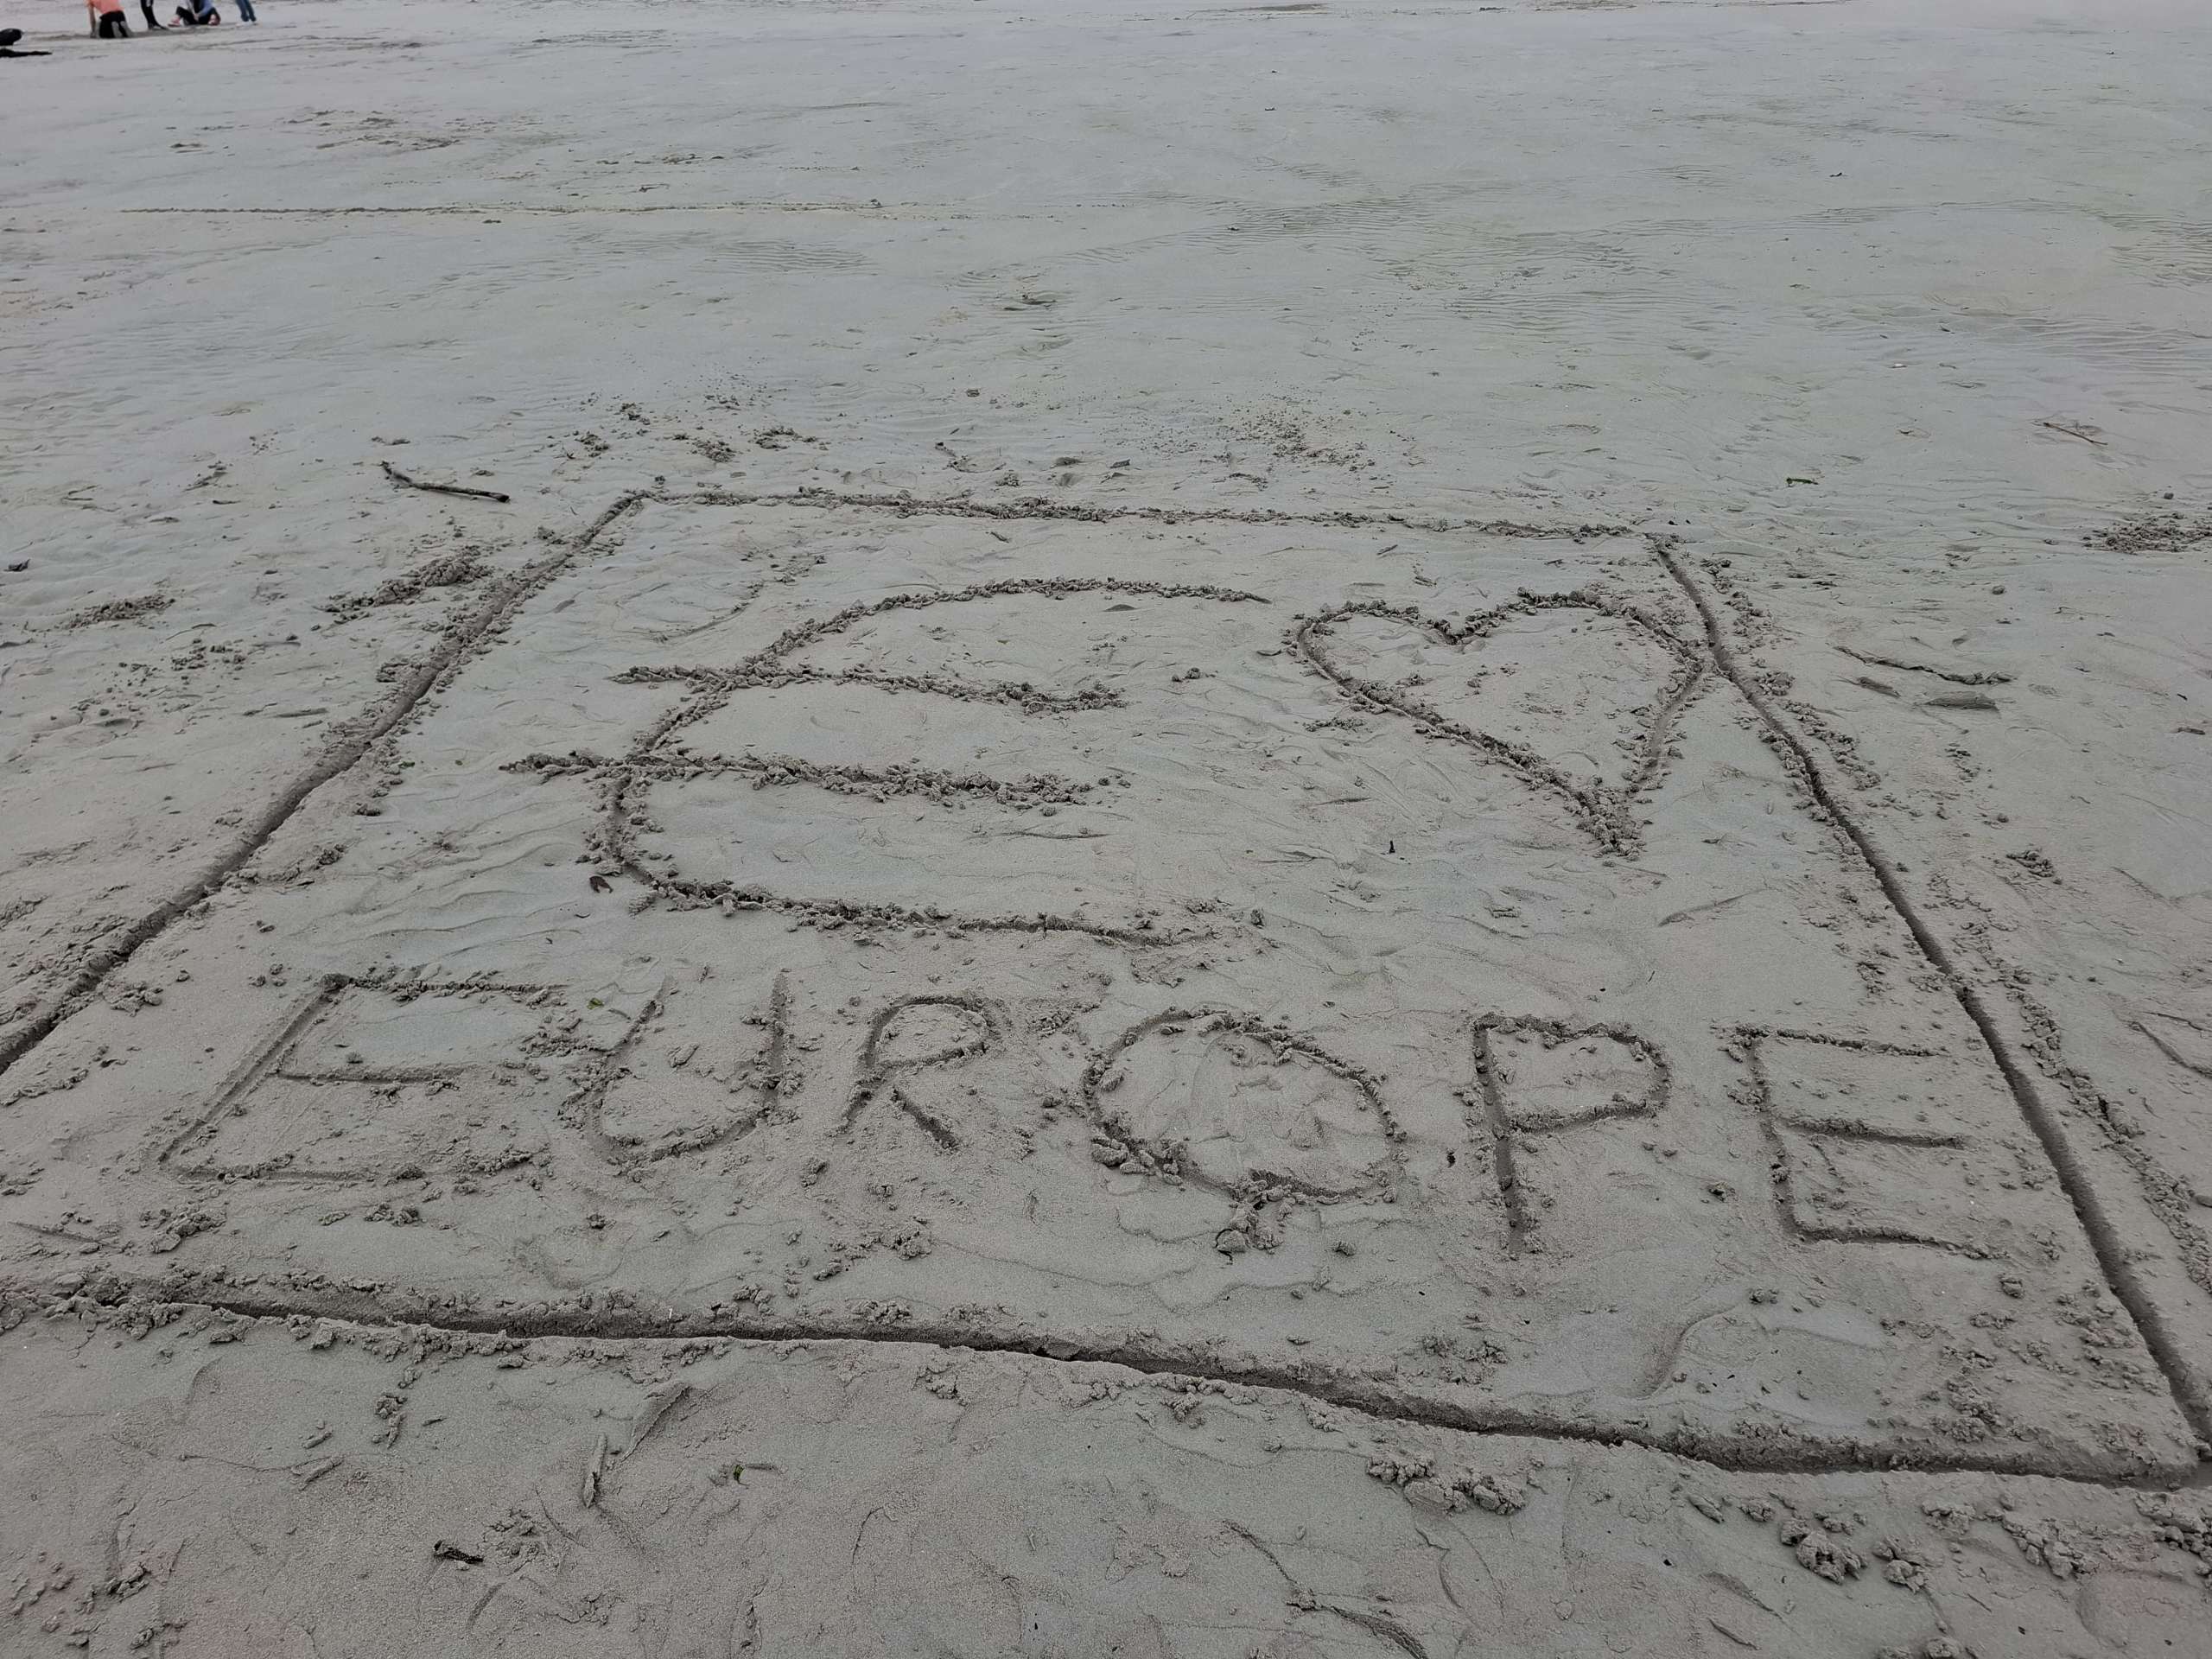 € ♡
EUROPE